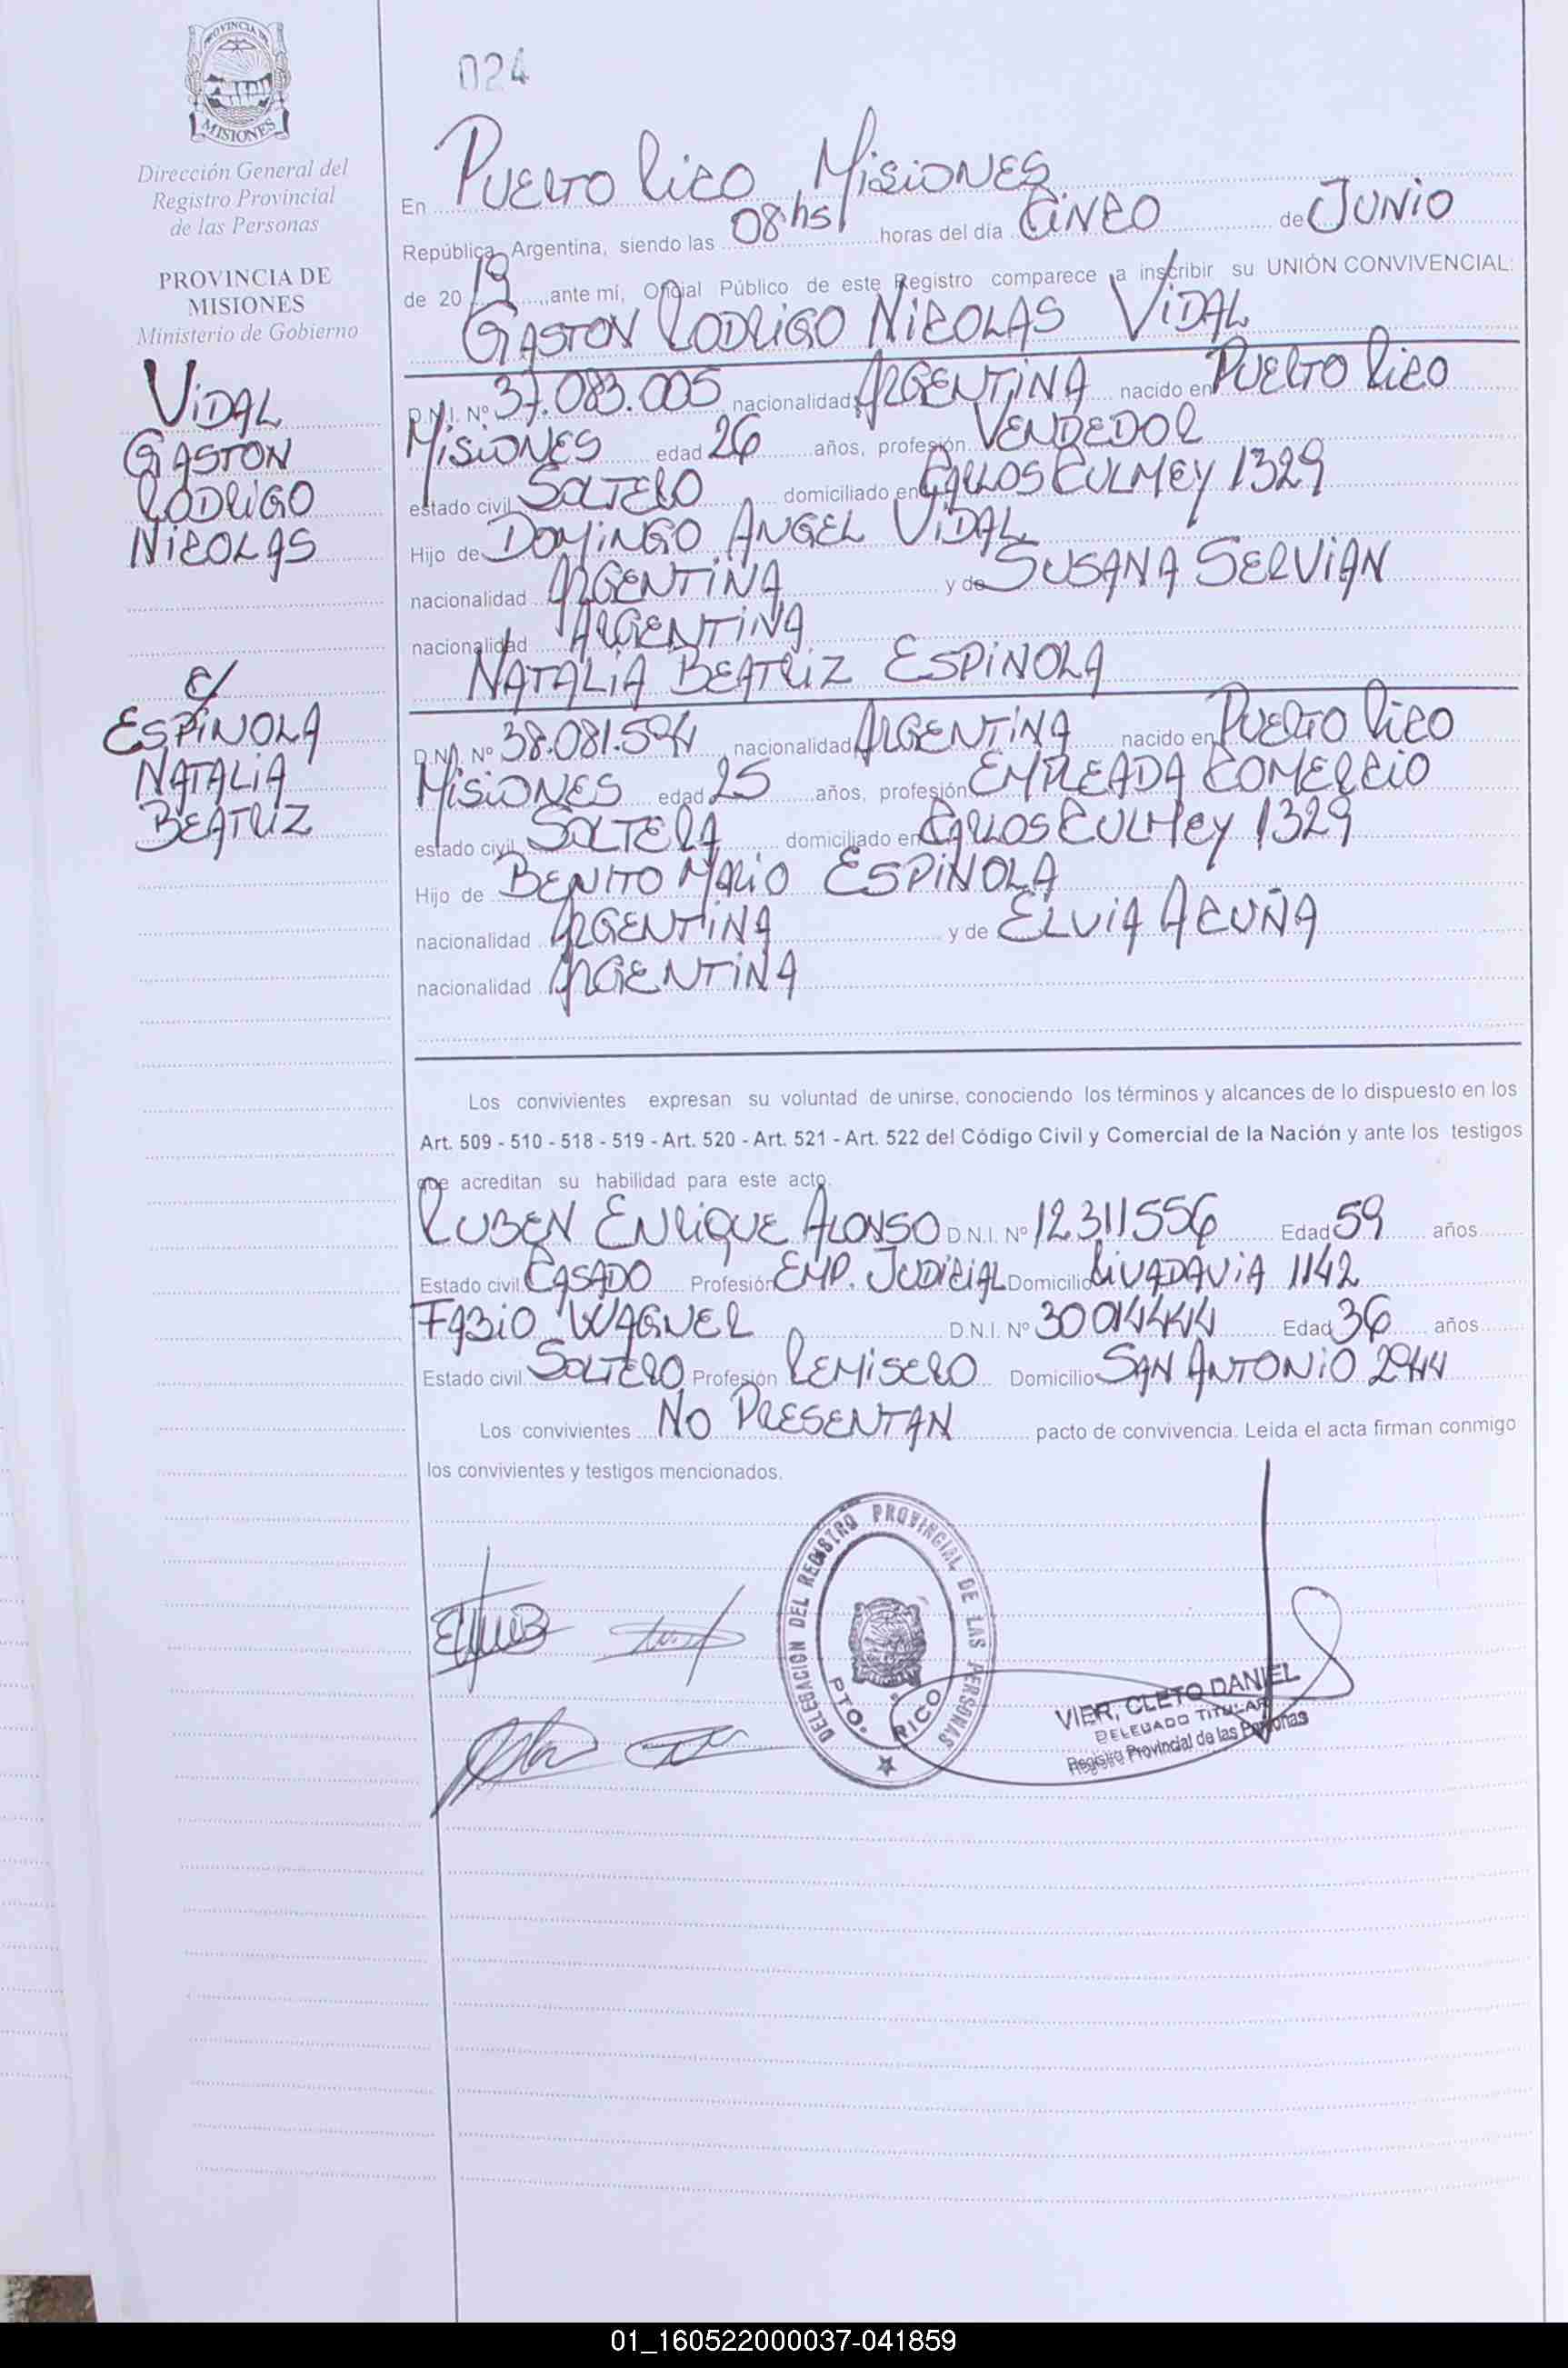 PROVINCIA DE
MISIONES
Dirección General del
Registro Provincial
de las Personas
PROVINCIA DE
MISIONES
Ministerio de Gobierno
VIDAL
GASTON
RODRIGO
NICOLAS
c/
ESPINOLA
NATALIA
BEATRIZ
024
En PUERTO RICO, MISIONES
República Argentina, siendo las 08 hs horas del día CINCO de JUNIO
de 2019, ante mí, Oficial Público de este Registro comparece a inscribir su UNIÓN CONVIVENCIAL:
GASTON RODRIGO NICOLAS VIDAL
D.N.I. Nº 37.083.005 nacionalidad ARGENTINA nacido en PUERTO RICO
MISIONES edad 26 años, profesión VENDEDOR
estado civil SOLTERO domiciliado en CARLOS CULMEY 1329
Hijo de DOMINGO ANGEL VIDAL
nacionalidad ARGENTINA y de SUSANA SERVIAN
nacionalidad ARGENTINA
NATALIA BEATRIZ ESPINOLA
D.N.I. Nº 38.081.594 nacionalidad ARGENTINA nacido en PUERTO RICO
MISIONES edad 25 años, profesión EMPLEADA COMERCIO
estado civil SOLTERA domiciliado en CARLOS CULMEY 1329
Hijo de BENITO MARIO ESPINOLA
nacionalidad ARGENTINA y de ELVIA ACUÑA
nacionalidad ARGENTINA
Los convivientes expresan su voluntad de unirse, conociendo los términos y alcances de lo dispuesto en los
Art. 509 - 510 - 518 - 519 - Art. 520 - Art. 521 - Art. 522 del Código Civil y Comercial de la Nación y ante los testigos
que acreditan su habilidad para este acto.
RUBEN ENRIQUE ALONSO D.N.I. Nº 12311556 Edad 59 años
Estado civil CASADO Profesión EMP. JUDICIAL Domicilio RIVADAVIA 1142
FABIO WAGNER D.N.I. Nº 30014444 Edad 36 años
Estado civil SOLTERO Profesión REMISERO Domicilio SAN ANTONIO 2944
Los convivientes NO PRESENTAN pacto de convivencia. Leida el acta firman conmigo
los convivientes y testigos mencionados.
DELEGACIÓN DEL REGISTRO PROVINCIAL DE LAS PERSONAS
PTO. RICO
VIER, CLETO DANIEL
DELEGADO TITULAR
Registro Provincial de las Personas
01_160522000037-041859